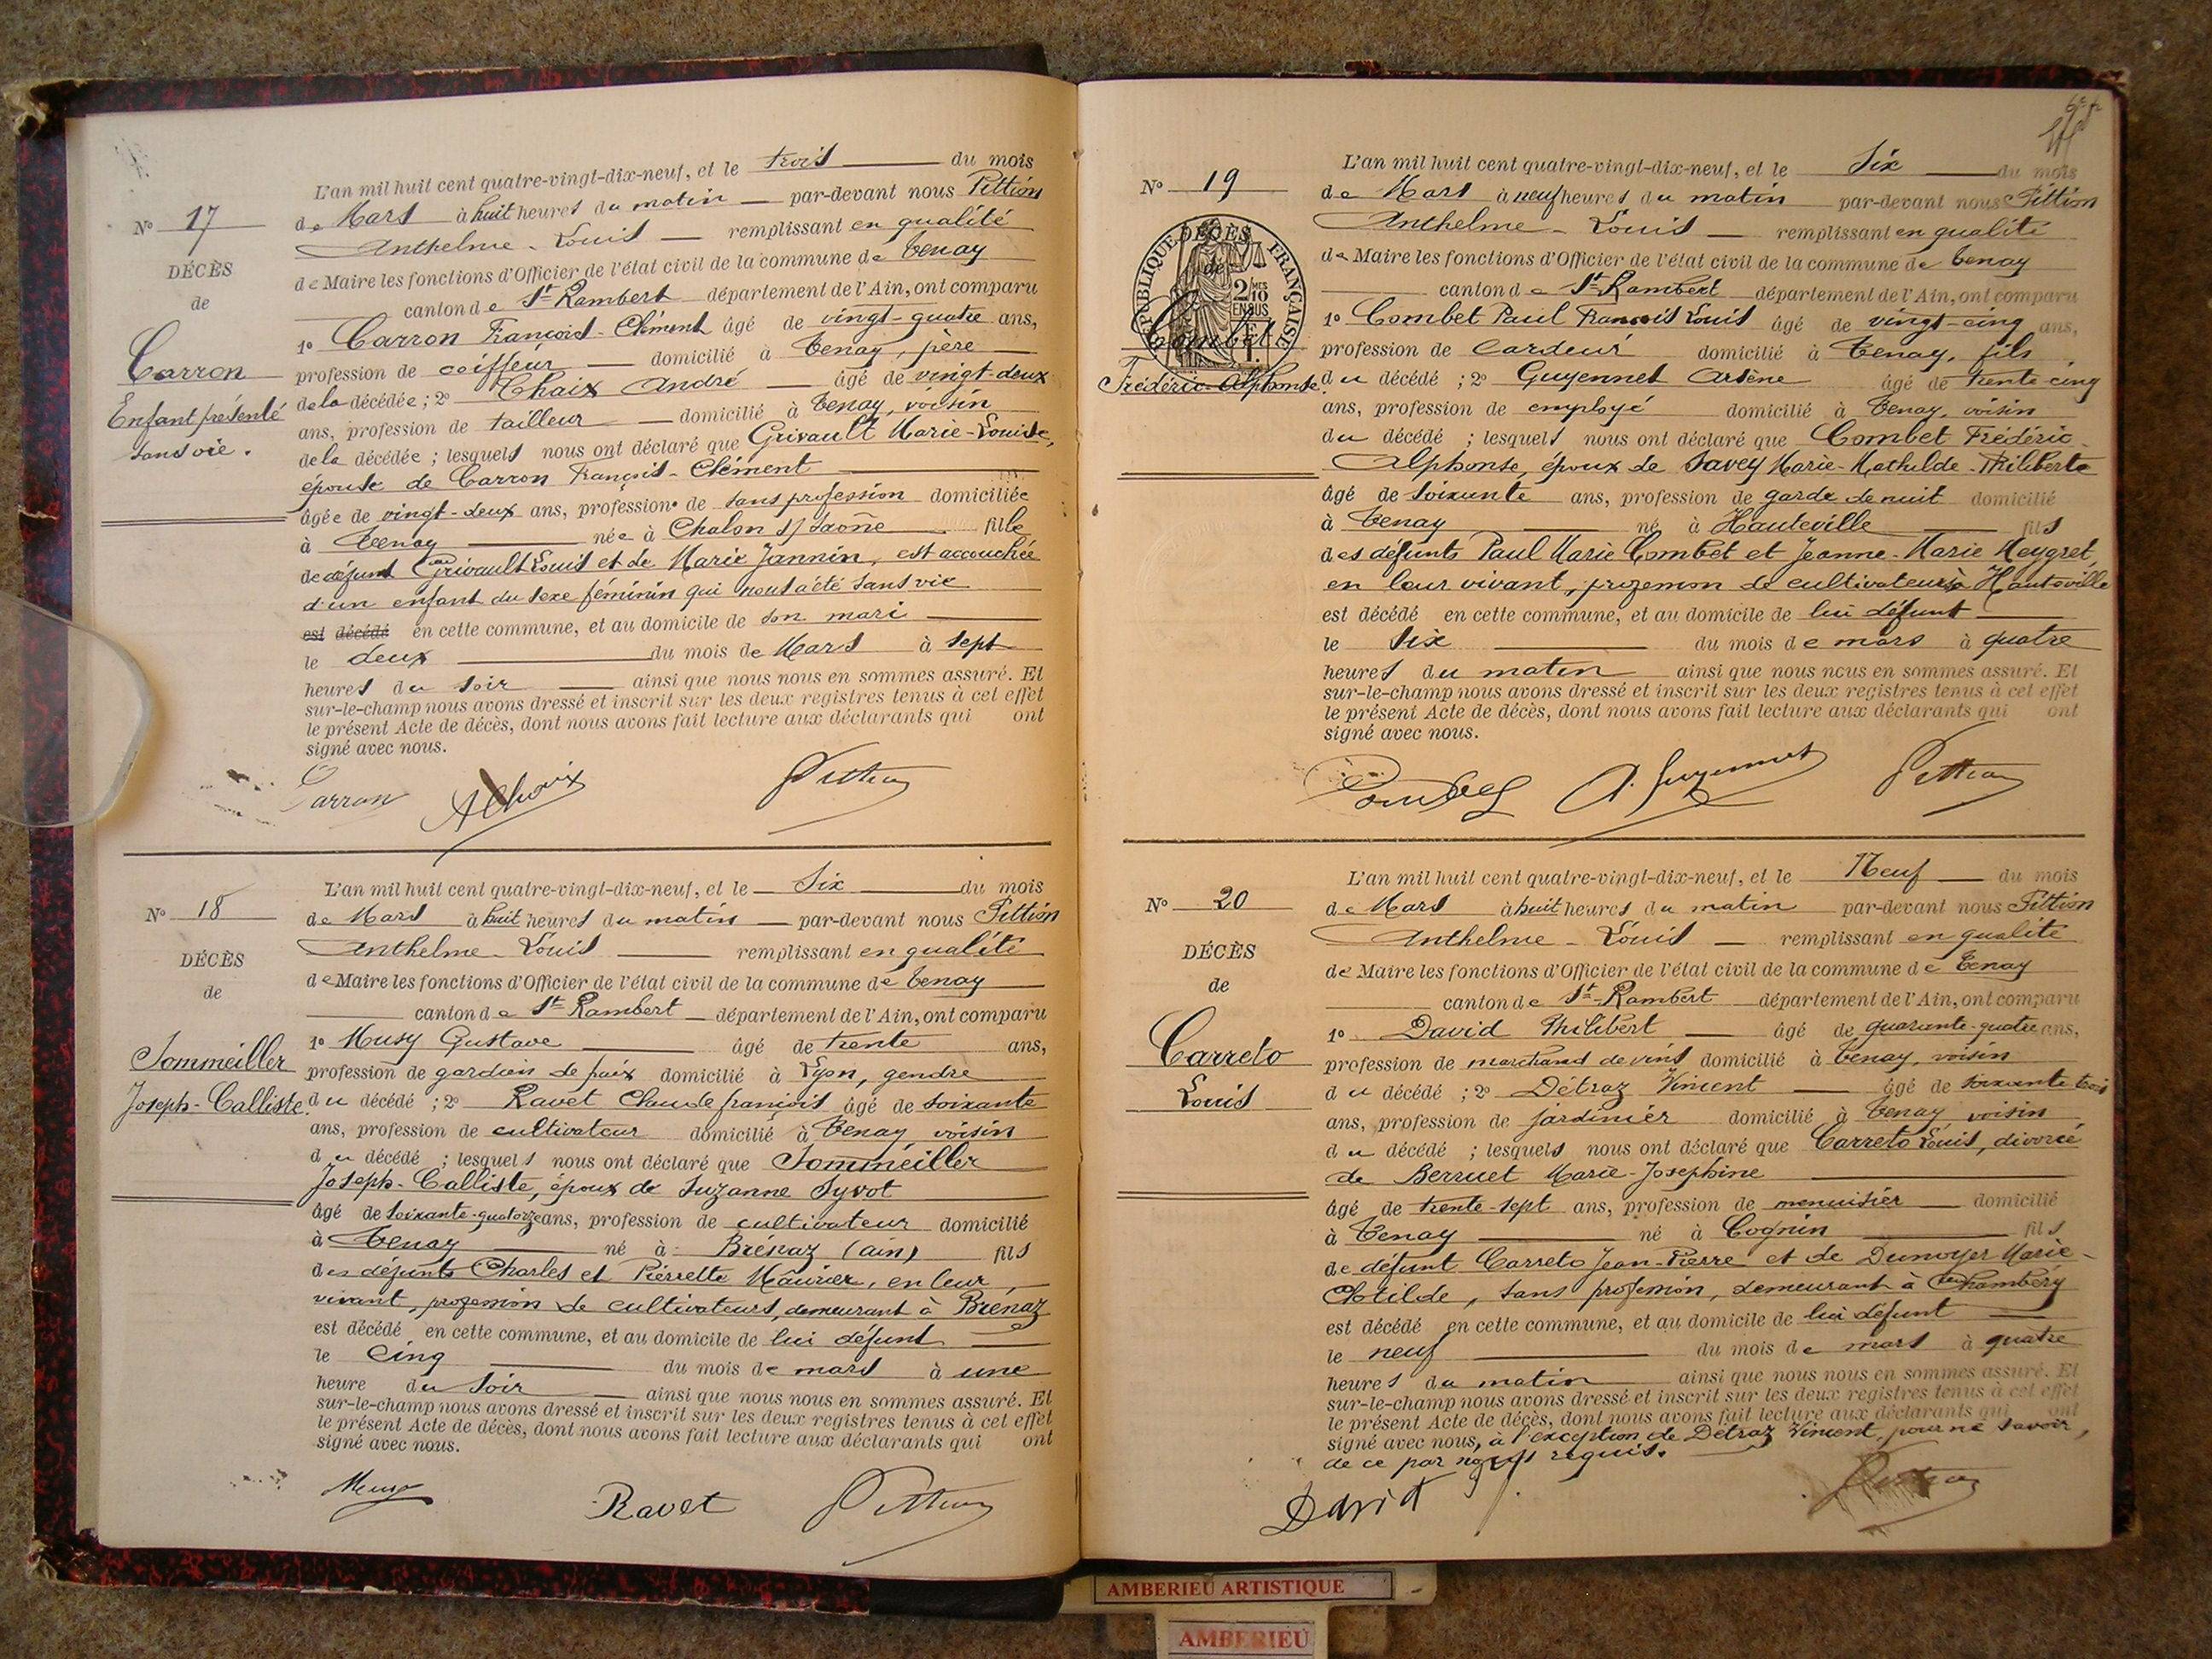 L'an mil huit cent quatre-vingt-dix-neuf, et le trois du mois
de Mars à huit heures du matin par-devant nous Pittion
Anthelme-Louis remplissant en qualité
de Maire les fonctions d'Officier de l'état civil de la commune de Tenay
canton de St Rambert département de l'Ain, ont comparu
1º Carron François-Clément âgé de vingt-quatre ans,
profession de coiffeur domicilié à Tenay, père
de la décédée ; 2º Chaix André âgé de vingt-deux
ans, profession de tailleur domicilié à Tenay, voisin
de la décédée ; lesquels nous ont déclaré que Grivault Marie-Louise,
épouse de Carron François-Clément
âgée de vingt-deux ans, profession de sans profession domiciliée
à Tenay née à Chalon s/ Saône fille
de défunt Grivault Louis et de Marie Jannin, est accouchée
d'un enfant du sexe féminin qui nous a été sans vie
est décédé en cette commune, et au domicile de son mari
le deux du mois de Mars à sept
heures du soir ainsi que nous nous en sommes assuré. Et
sur-le-champ nous avons dressé et inscrit sur les deux registres tenus à cet effet
le présent Acte de décès, dont nous avons fait lecture aux déclarants qui ont
signé avec nous.
Carron AChaix Pittion
Nº 17
DÉCÈS
de
Carron
Enfant présenté
sans vie.
L'an mil huit cent quatre-vingt-dix-neuf, et le Six du mois
de Mars à huit heures du matin par-devant nous Pittion
Anthelme-Louis remplissant en qualité
de Maire les fonctions d'Officier de l'état civil de la commune de Tenay
canton de St Rambert département de l'Ain, ont comparu
1º Musy Gustave âgé de trente ans,
profession de gardien de paix domicilié à Lyon, gendre
du décédé ; 2º Ravet Claude françois âgé de soixante
ans, profession de cultivateur domicilié à Tenay, voisin
du décédé ; lesquels nous ont déclaré que Sommeiller
Joseph-Calliste, époux de Suzanne Syvot
âgé de soixante-quatorze ans, profession de cultivateur domicilié
à Tenay né à Brénaz (ain) fils
des défunts Charles et Pierrette Maurier, en leur
vivant, profession de cultivateurs, demeurant à Brenaz
est décédé en cette commune, et au domicile de lui défunt
le cinq du mois de mars à une
heure du soir ainsi que nous nous en sommes assuré. Et
sur-le-champ nous avons dressé et inscrit sur les deux registres tenus à cet effet
le présent Acte de décès, dont nous avons fait lecture aux déclarants qui ont
signé avec nous.
Musy Ravet Pittion
Nº 18
DÉCÈS
de
Sommeiller
Joseph-Calliste.
L'an mil huit cent quatre-vingt-dix-neuf, et le Six du mois
de Mars à neuf heures du matin par-devant nous Pittion
Anthelme-Louis remplissant en qualité
de Maire les fonctions d'Officier de l'état civil de la commune de Tenay
canton de St-Rambert département de l'Ain, ont comparu
1º Combet Paul François Louis âgé de vingt-cinq ans,
profession de Cardeur domicilié à Tenay, fils
du décédé ; 2º Guyennet Arsène âgé de trente-cinq
ans, profession de employé domicilié à Tenay, voisin
du décédé ; lesquels nous ont déclaré que Combet Frédéric-
Alphonse, époux de Savey Marie-Mathilde-Philiberte
âgé de soixante ans, profession de garde de nuit domicilié
à Tenay né à Hauteville fils
des défunts Paul Marie Combet et Jeanne-Marie Meygret,
en leur vivant, profession de cultivateurs à Hauteville
est décédé en cette commune, et au domicile de lui défunt
le six du mois de mars à quatre
heures du matin ainsi que nous nous en sommes assuré. Et
sur-le-champ nous avons dressé et inscrit sur les deux registres tenus à cet effet
le présent Acte de décès, dont nous avons fait lecture aux déclarants qui ont
signé avec nous.
Combet A. Guyennet Pittion
Nº 19
RÉPUBLIQUE FRANÇAISE
DÉCÈS
de
2 MES
10
EN SUS
Combet
Frédéric-Alphonse.
L'an mil huit cent quatre-vingt-dix-neuf, et le Neuf du mois
de Mars à huit heures du matin par-devant nous Pittion
Anthelme-Louis remplissant en qualité
de Maire les fonctions d'Officier de l'état civil de la commune de Tenay
canton de St-Rambert département de l'Ain, ont comparu
1º David Philibert âgé de quarante-quatre ans,
profession de marchand de vins domicilié à Tenay, voisin
du décédé ; 2º Détraz Vincent âgé de soixante trois
ans, profession de jardinier domicilié à Tenay voisin
du décédé ; lesquels nous ont déclaré que Carreto Louis, divorcé
de Berruet Marie-Josephine
âgé de trente-sept ans, profession de menuisier domicilié
à Tenay né à Cognin fils
de défunt Carreto Jean-Pierre et de Dunoyer Marie-
Clotilde, sans profession, demeurant à Chambéry
est décédé en cette commune, et au domicile de lui défunt
le neuf du mois de mars à quatre
heures du matin ainsi que nous nous en sommes assuré. Et
sur-le-champ nous avons dressé et inscrit sur les deux registres tenus à cet effet
le présent Acte de décès, dont nous avons fait lecture aux déclarants qui ont
signé avec nous, à l'exception de Détraz Vincent, pour ne savoir,
de ce par nous requis.
David Pittion
Nº 20
DÉCÈS
de
Carreto
Louis
AMBERIEU ARTISTIQUE
AMBERIEU